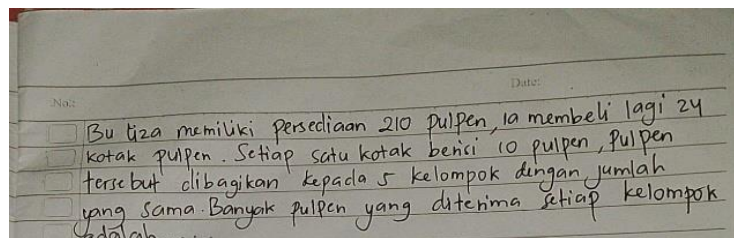 No.:
Date:
Bu tiza memiliki persediaan 210 pulpen, ia membeli lagi 24
kotak pulpen. Setiap satu kotak berisi 10 pulpen, Pulpen
tersebut dibagikan kepada 5 kelompok dengan jumlah
yang sama. Banyak pulpen yang diterima setiap kelompok
adalah